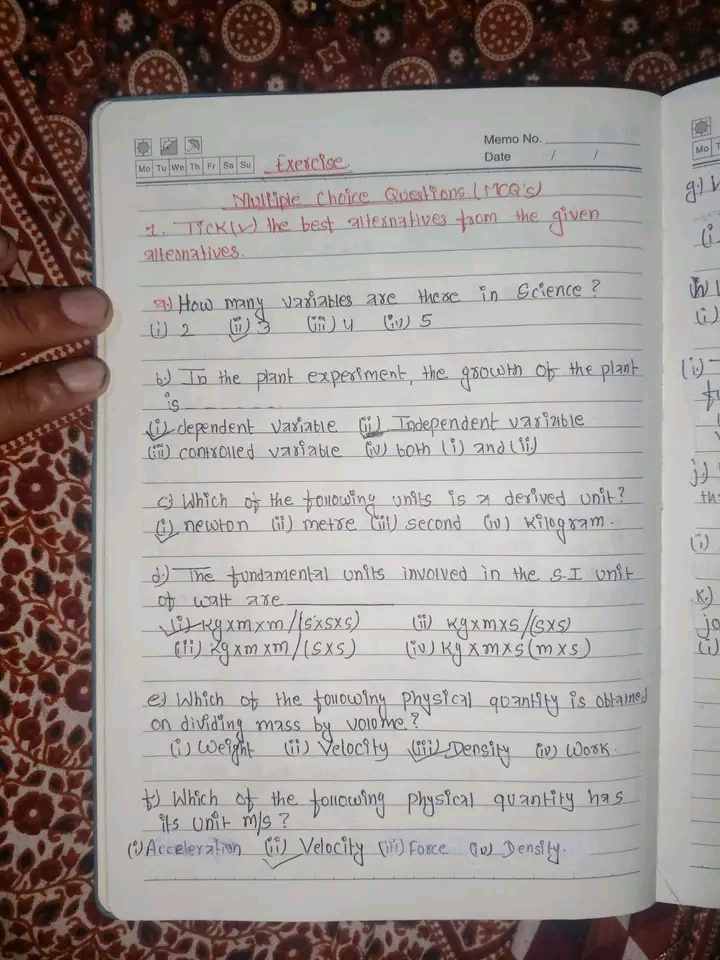 Memo No.
Mo Tu We Th Fr Sa Su
Exercise
Date / /
Multiple Choice Questions (MCQ's)
1. Tick(✓) the best alternatives from the given
alternatives.
a.) How many variables are there in Science?
(i) 2 (ii) 3 (iii) 4 (iv) 5
b.) In the plant experiment, the growth of the plant
is _ _ _ _ _ _
(i) dependent variable (ii) Independent variable
(iii) controlled variable (iv) both (i) and (ii)
c.) Which of the following units is a derived unit?
(i) newton (ii) metre (iii) second (iv) kilogram.
d.) The fundamental units involved in the S.I unit
of watt are ________
(i) kg×m×m/(s×s×s) (ii) kg×m×s/(s×s)
(iii) kg×m×m/(s×s) (iv) kg×m×s(m×s)
e.) Which of the following physical quantity is obtained
on dividing mass by volume?
(i) Weight (ii) Velocity (iii) Density (iv) Work.
f.) Which of the following physical quantity has
its unit m/s?
(i) Acceleration (ii) Velocity (iii) Force (iv) Density.
Mo
g.)
(i
(i)
(i.)
j.)
th
(i)
K.)
jo
(i)